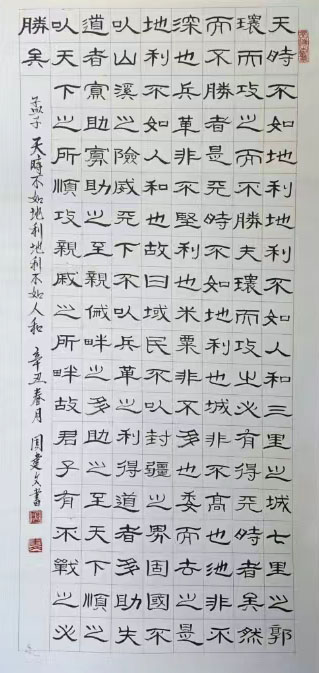 天時不如地利地利不如人和三里之城七里之郭
環而攻之而不勝夫環而攻之必有得天時者矣然
而不勝者是天時不如地利也城非不高也池非不
深也兵革非不堅利也米粟非不多也委而去之是
地利不如人和也故曰域民不以封疆之界固國不
以山溪之險威天下不以兵革之利得道者多助失
道者寡助寡助之至親戚畔之多助之至天下順之
以天下之所順攻親戚之所畔故君子有不戰之必
勝矣
孟子 天時不如地利地利不如人和 辛丑春月 国建 書